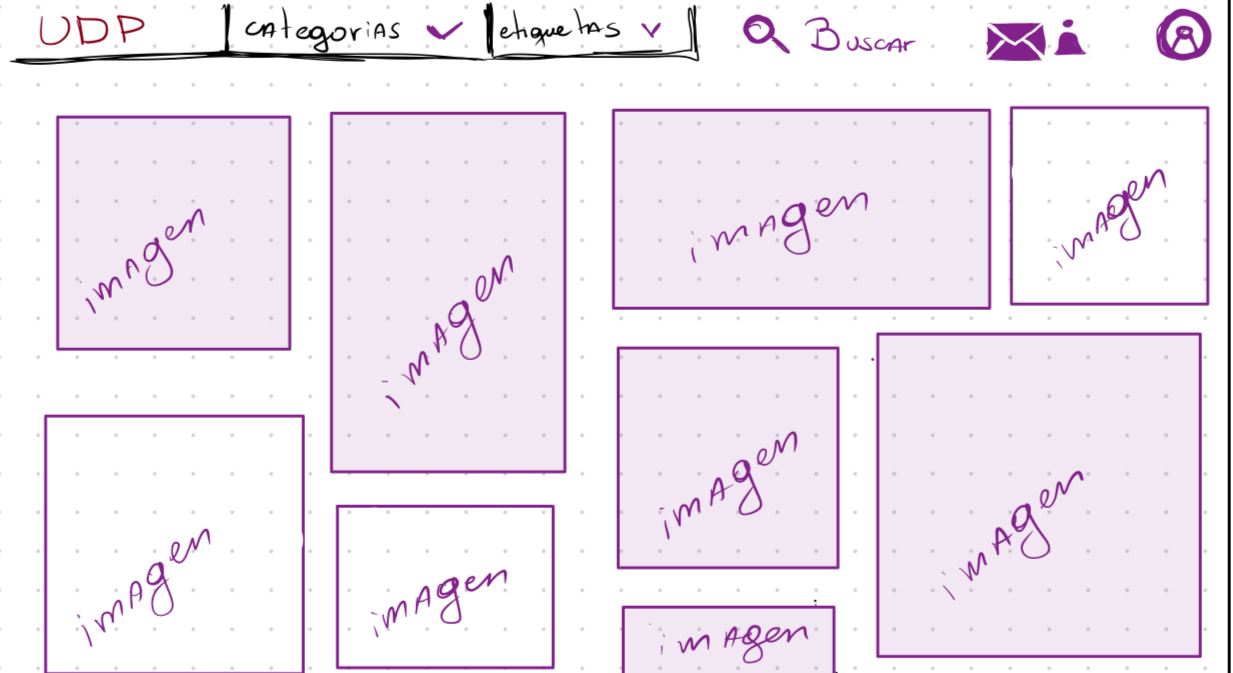 UDP categorias etiquetas Buscar
imagen
imagen
imagen
imagen
imagen
imagen
imagen
imagen
imagen